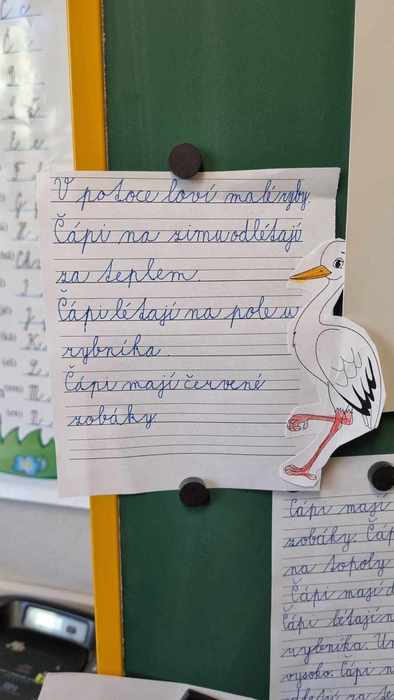 V potoce loví malé ryby.
Čápi na zimu odlétají
za teplem.
Čápi létají na pole u
rybníka.
Čápi mají červené
zobáky.
Čápi mají
zobáky. Čáp
na topoly
Čápi mají d
Čápi létají n
rybníka.
vysoko. Čápi n